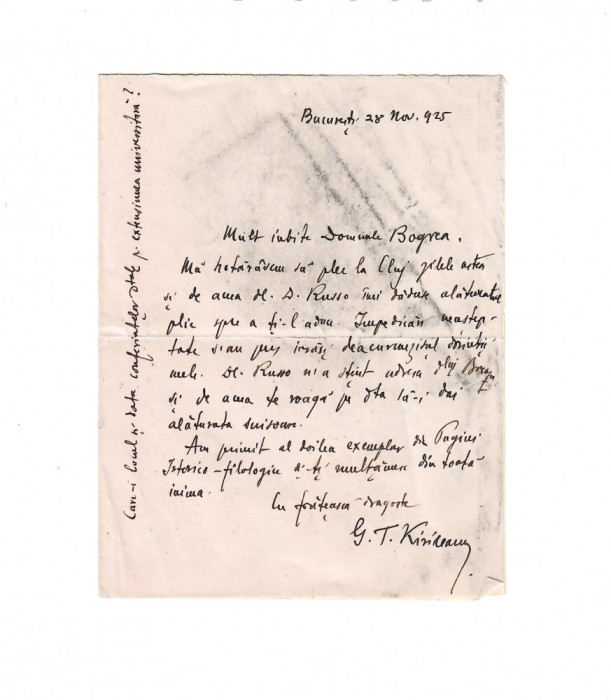 București 28 Nov. 925
Mult iubite Domnule Bogrea,
Mă hotărâsem să plec la Cluj zilele astea
și de aceea dl. D. Russo îmi dăduse alăturatul
plic spre a ți-l aduce. Impedicări neaștep-
tate s'au pus iarăși deacurmezișul dorinții
mele. Dl. Russo n'a știut adresa dlui
și de aceea te roagă pe dta să-i dai
alăturata scrisoare.
Am primit al doilea exemplar din Pagini
Istorico-filologice și-ți mulțămesc din toată
inima.
Cu frățească dragoste
G. T. Kirileanu
Care-i locul și data conferințelor dtale pe extensiunea universitară?